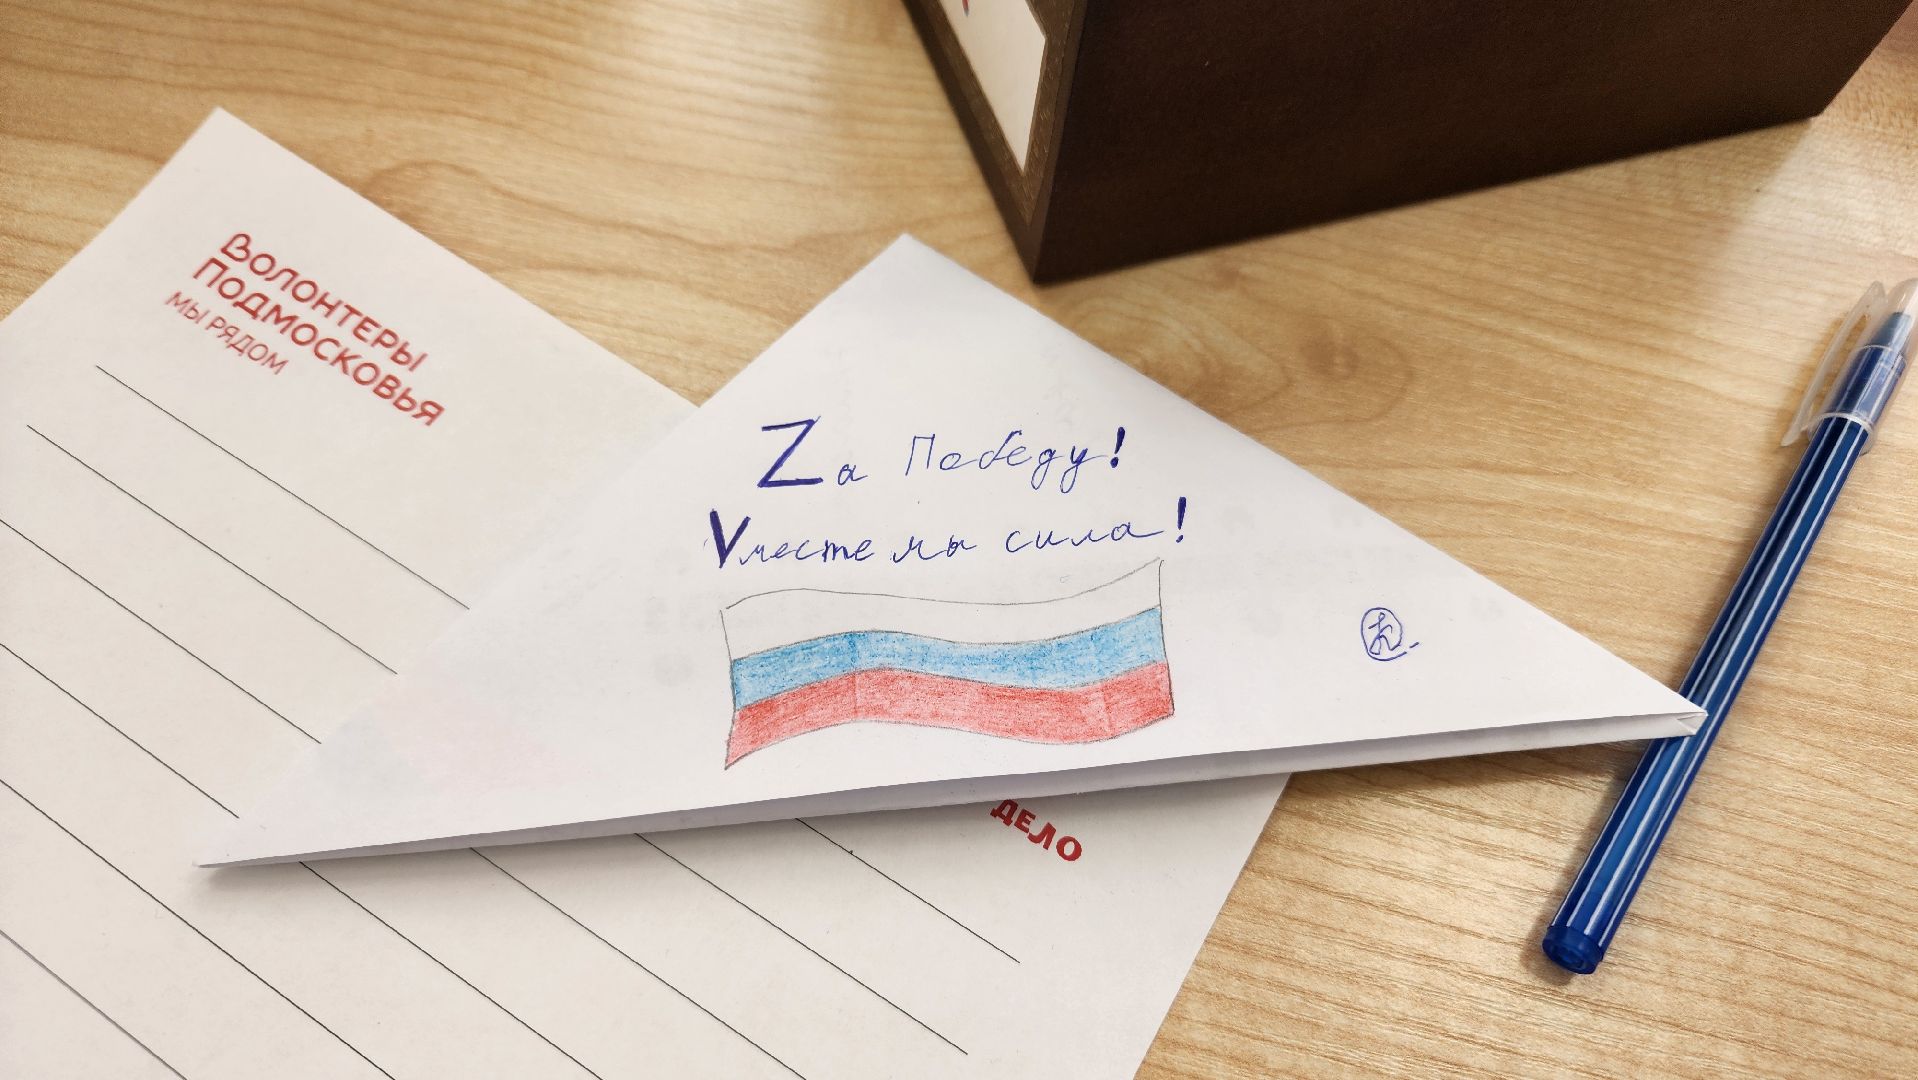 Волонтеры
Подмосковья
мы рядом
Zа Победу!
Vместе мы сила!
дело